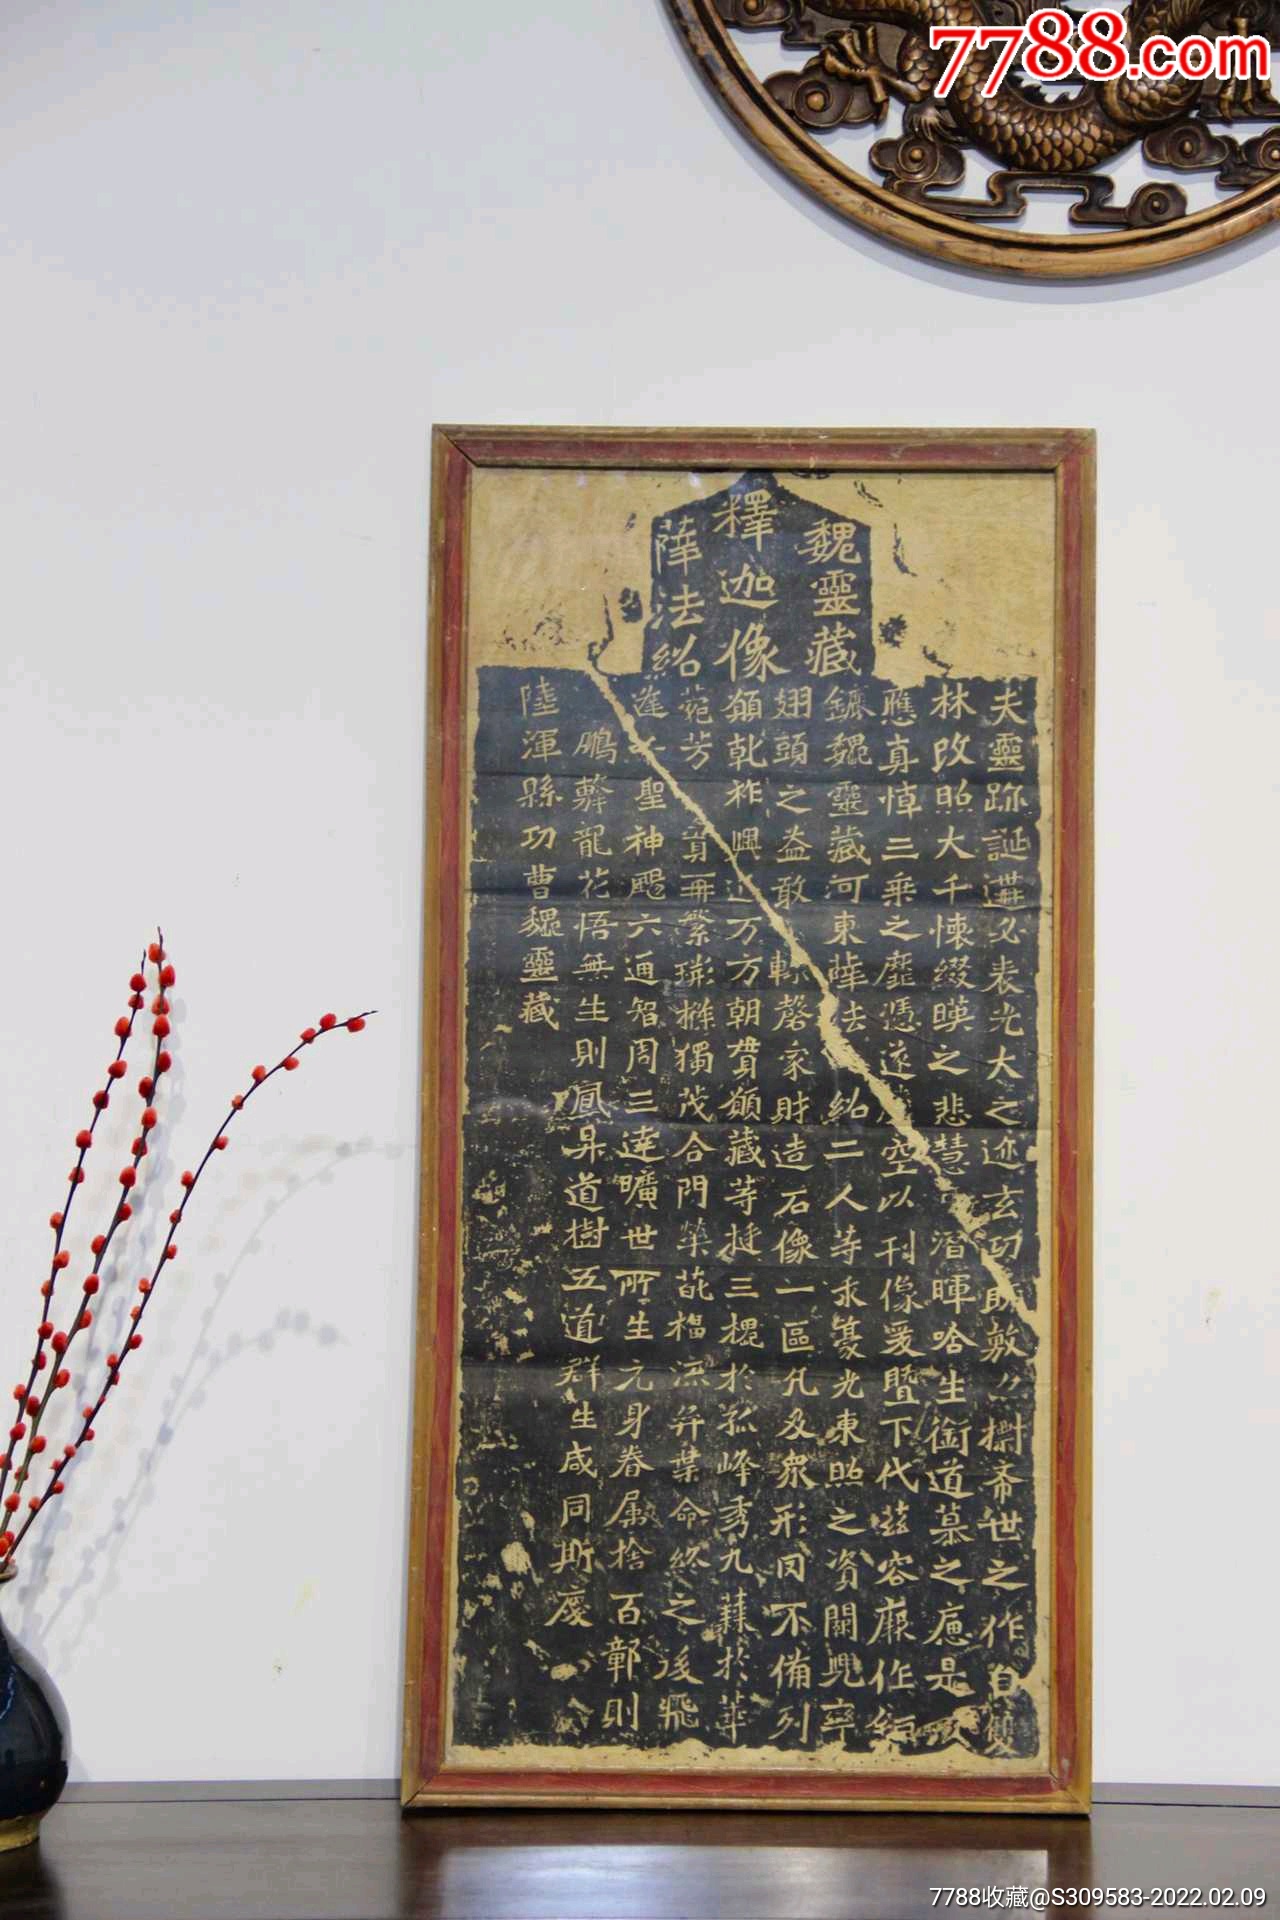 7788.com
魏靈藏
釋迦像
薛法紹
夫靈跡誕遘必表光大之迹玄功敷樹希世之作自雙
林改照大千懷綴暎之悲慧潛暉唅生銜道慕之是
應真悼三乘之靡憑遂空以刊像爰暨下代茲容厥作
魏靈藏河東薛法紹二人等求豪光東照之資闕兜率
翅頭之益敢輒磬家財造石像一區凡及眾形罔不備列
願乾祚興延万方朝貫願藏等挺三槐於孤峰秀九蕀於華
菀芳實再繁獨茂合門榮葩福流弈葉命終之後飛
逢千聖神颺六通智周三達曠世所生元身眷属捨百鄣則
鵬擊龍花悟無生則鳳昇道樹五道群生咸同斯慶
陸渾縣功曹魏靈藏
7788收藏@S309583-2022.02.09